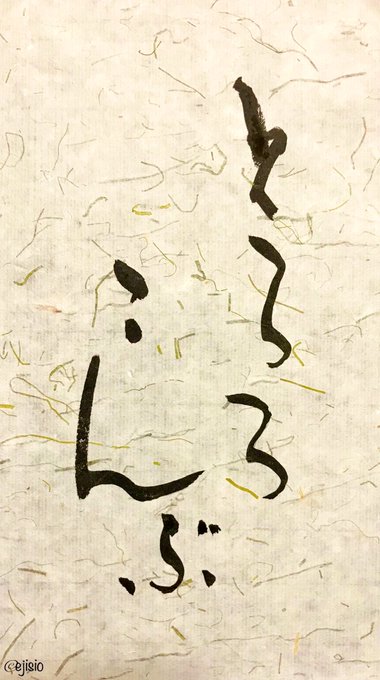 とろろ
こんぶ
@ejisio